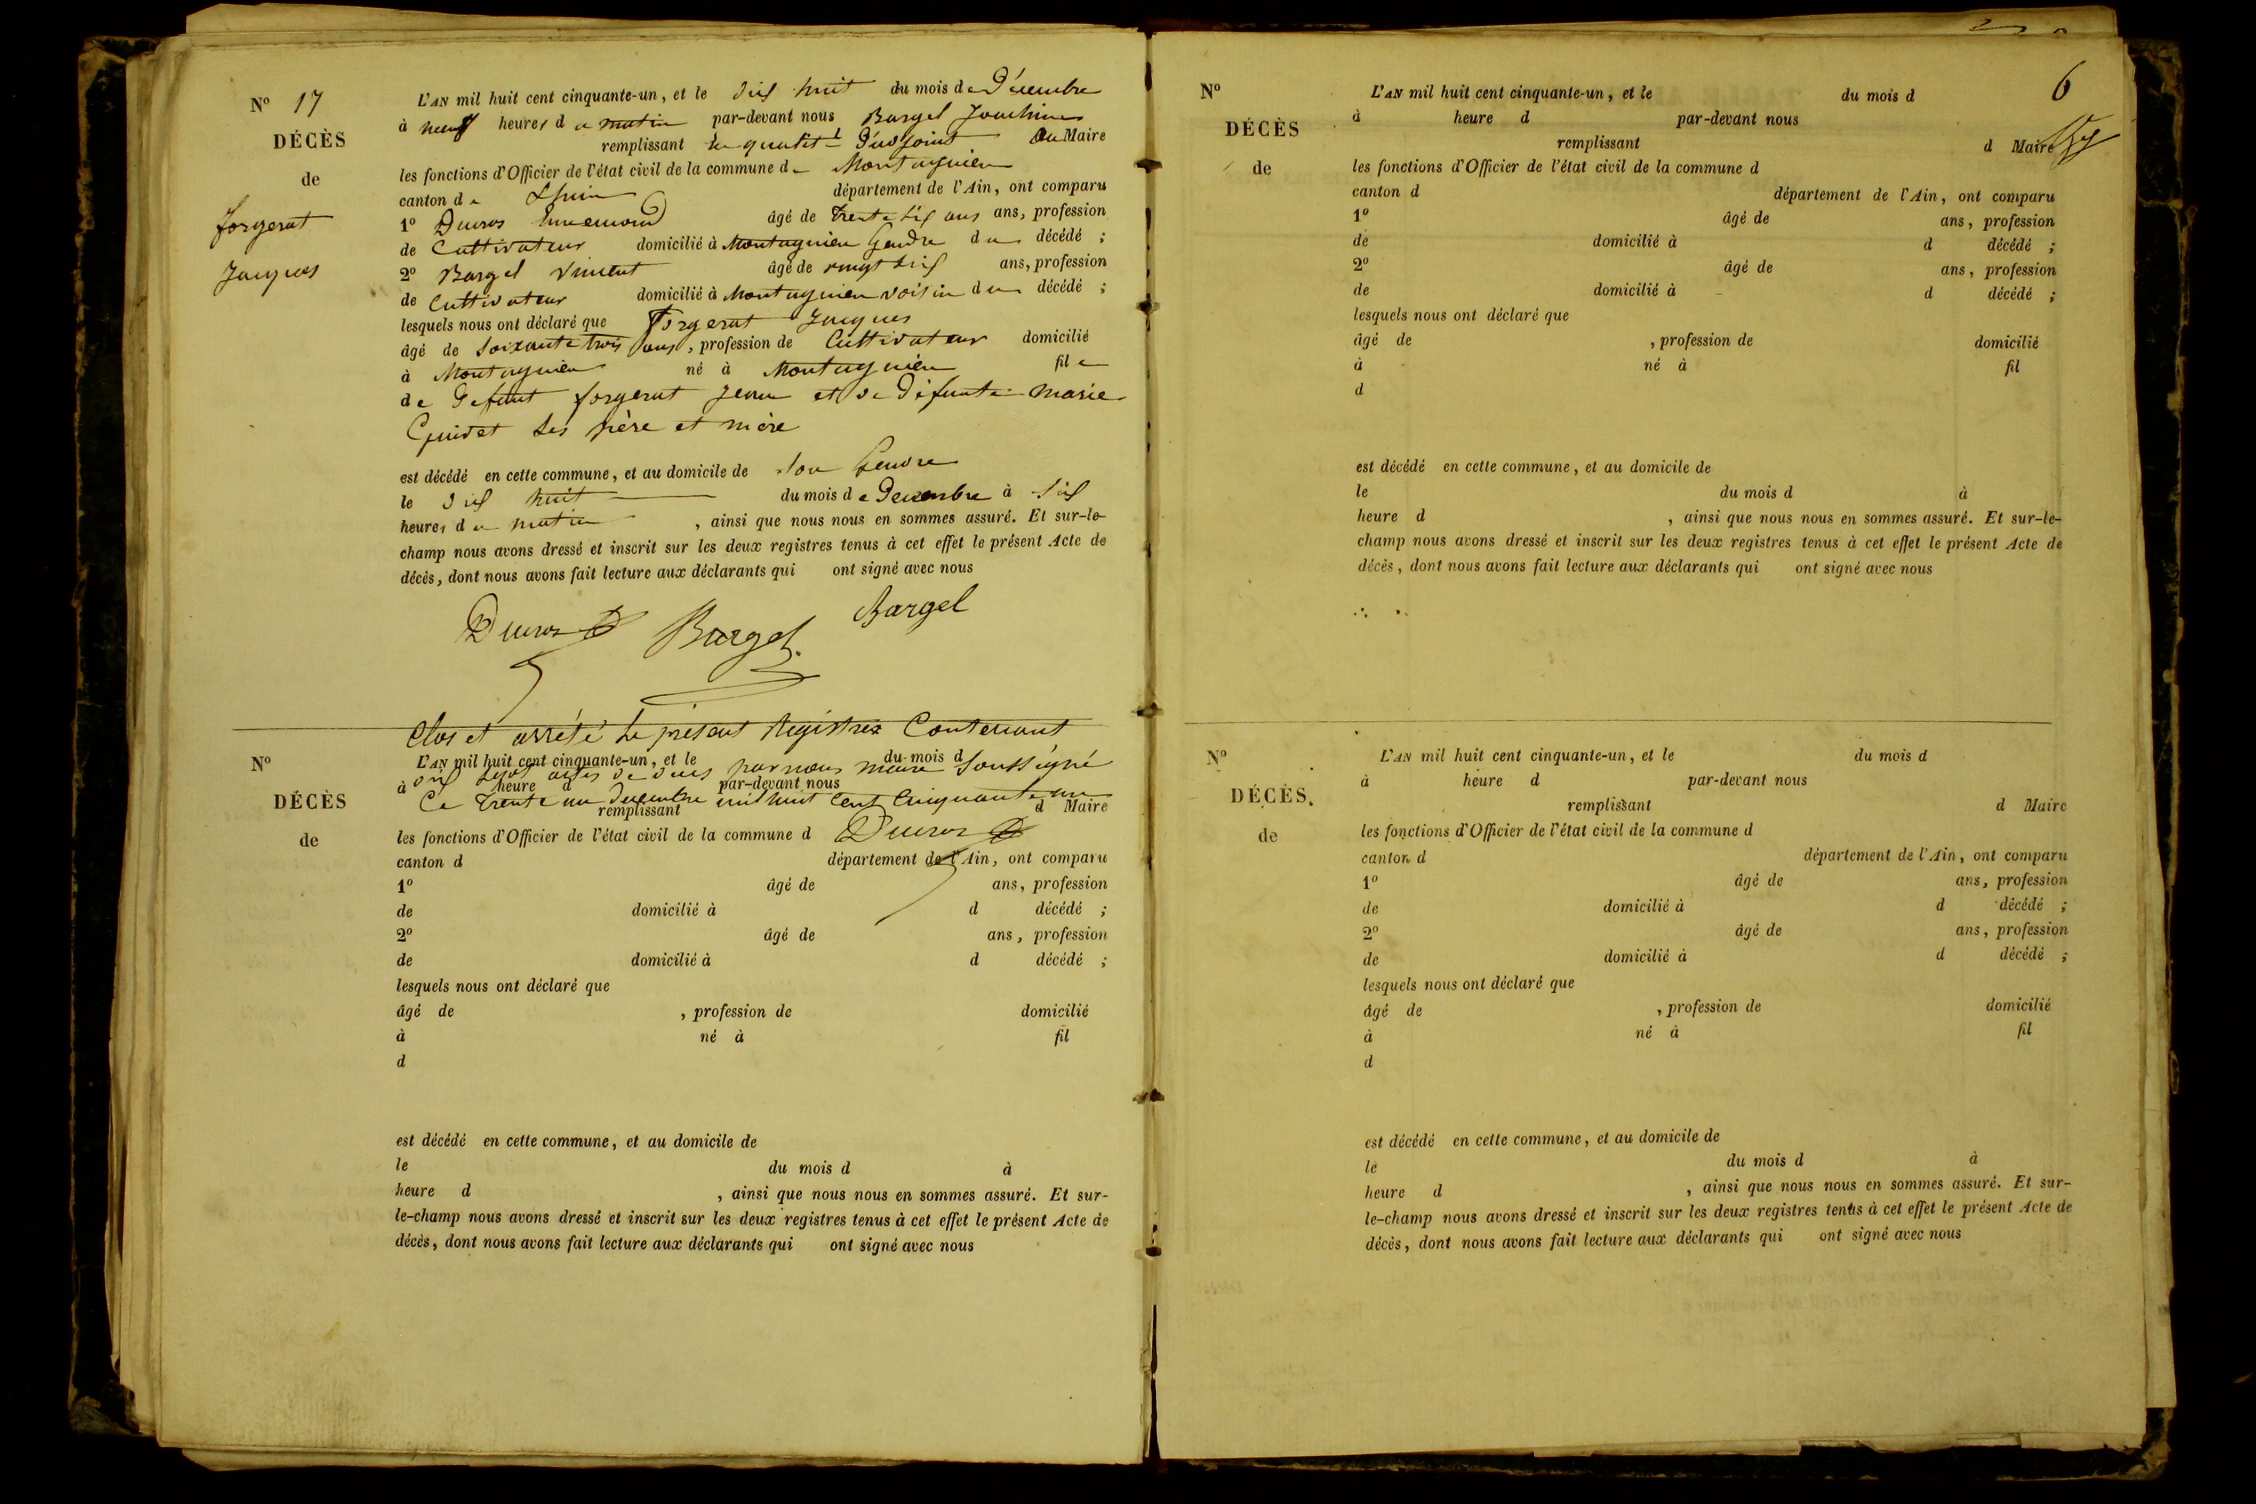 Nº 17
DÉCÈS
de
forgerat
Jacques
L'AN mil huit cent cinquante-un, et le dix huit du mois de Décembre
à neuf heures du matin par-devant nous Bargel Joachim
remplissant en qualité d'adjoint au Maire
les fonctions d'Officier de l'état civil de la commune de Montagnieu
canton de Lhuis département de l'Ain, ont comparu
1º Ducros Ennemond âgé de trente six ans ans, profession
de Cultivateur domicilié à Montagnieu Gendre du décédé ;
2º Bargel Vincent âgé de vingt six ans, profession
de Cultivateur domicilié à Montagnieu voisin du décédé ;
lesquels nous ont déclaré que Forgerat Jacques
âgé de soixante trois ans, profession de Cultivateur domicilié
à Montagnieu né à Montagnieu fil
de defunt forgerat Jean et de défunte marie
Guidet ses père et mère
est décédé en cette commune, et au domicile de son Gendre
le dix huit du mois de Decembre à six
heures du matin , ainsi que nous nous en sommes assuré. Et sur-le-
champ nous avons dressé et inscrit sur les deux registres tenus à cet effet le présent Acte de
décès, dont nous avons fait lecture aux déclarants qui ont signé avec nous
Ducros Bargel Bargel
Clos et arrété le présent Registre Contenant
dix sept actes de décès par nous maire soussigné
Ce trente un Decembre mil huit cent cinquante un
Ducros
Nº
DÉCÈS
de
L'AN mil huit cent cinquante-un, et le du mois d
à heure d par-devant nous
remplissant d Maire
les fonctions d'Officier de l'état civil de la commune d
canton d département de l'Ain, ont comparu
1º âgé de ans, profession
de domicilié à d décédé ;
2º âgé de ans, profession
de domicilié à d décédé ;
lesquels nous ont déclaré que
âgé de , profession de domicilié
à né à fil
d
est décédé en cette commune, et au domicile de
le du mois d à
heure d , ainsi que nous nous en sommes assuré. Et sur-
le-champ nous avons dressé et inscrit sur les deux registres tenus à cet effet le présent Acte de
décès, dont nous avons fait lecture aux déclarants qui ont signé avec nous
6
Nº
DÉCÈS
de
L'AN mil huit cent cinquante-un, et le du mois d
à heure d par-devant nous
remplissant d Maire
les fonctions d'Officier de l'état civil de la commune d
canton d département de l'Ain, ont comparu
1º âgé de ans, profession
de domicilié à d décédé ;
2º âgé de ans, profession
de domicilié à d décédé ;
lesquels nous ont déclaré que
âgé de , profession de domicilié
à né à fil
d
est décédé en cette commune, et au domicile de
le du mois d à
heure d , ainsi que nous nous en sommes assuré. Et sur-le-
champ nous avons dressé et inscrit sur les deux registres tenus à cet effet le présent Acte de
décès, dont nous avons fait lecture aux déclarants qui ont signé avec nous
Nº
DÉCÈS.
de
L'AN mil huit cent cinquante-un, et le du mois d
à heure d par-devant nous
remplissant d Maire
les fonctions d'Officier de l'état civil de la commune d
canton d département de l'Ain, ont comparu
1º âgé de ans, profession
de domicilié à d décédé ;
2º âgé de ans, profession
de domicilié à d décédé ;
lesquels nous ont déclaré que
âgé de , profession de domicilié
à né à fil
d
est décédé en cette commune, et au domicile de
le du mois d à
heure d , ainsi que nous nous en sommes assuré. Et sur-
le-champ nous avons dressé et inscrit sur les deux registres tenus à cet effet le présent Acte de
décès, dont nous avons fait lecture aux déclarants qui ont signé avec nous